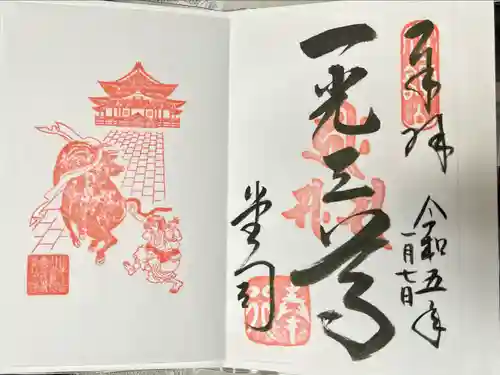 奉拝
令和五年
一月七日
一光三尊
堂司